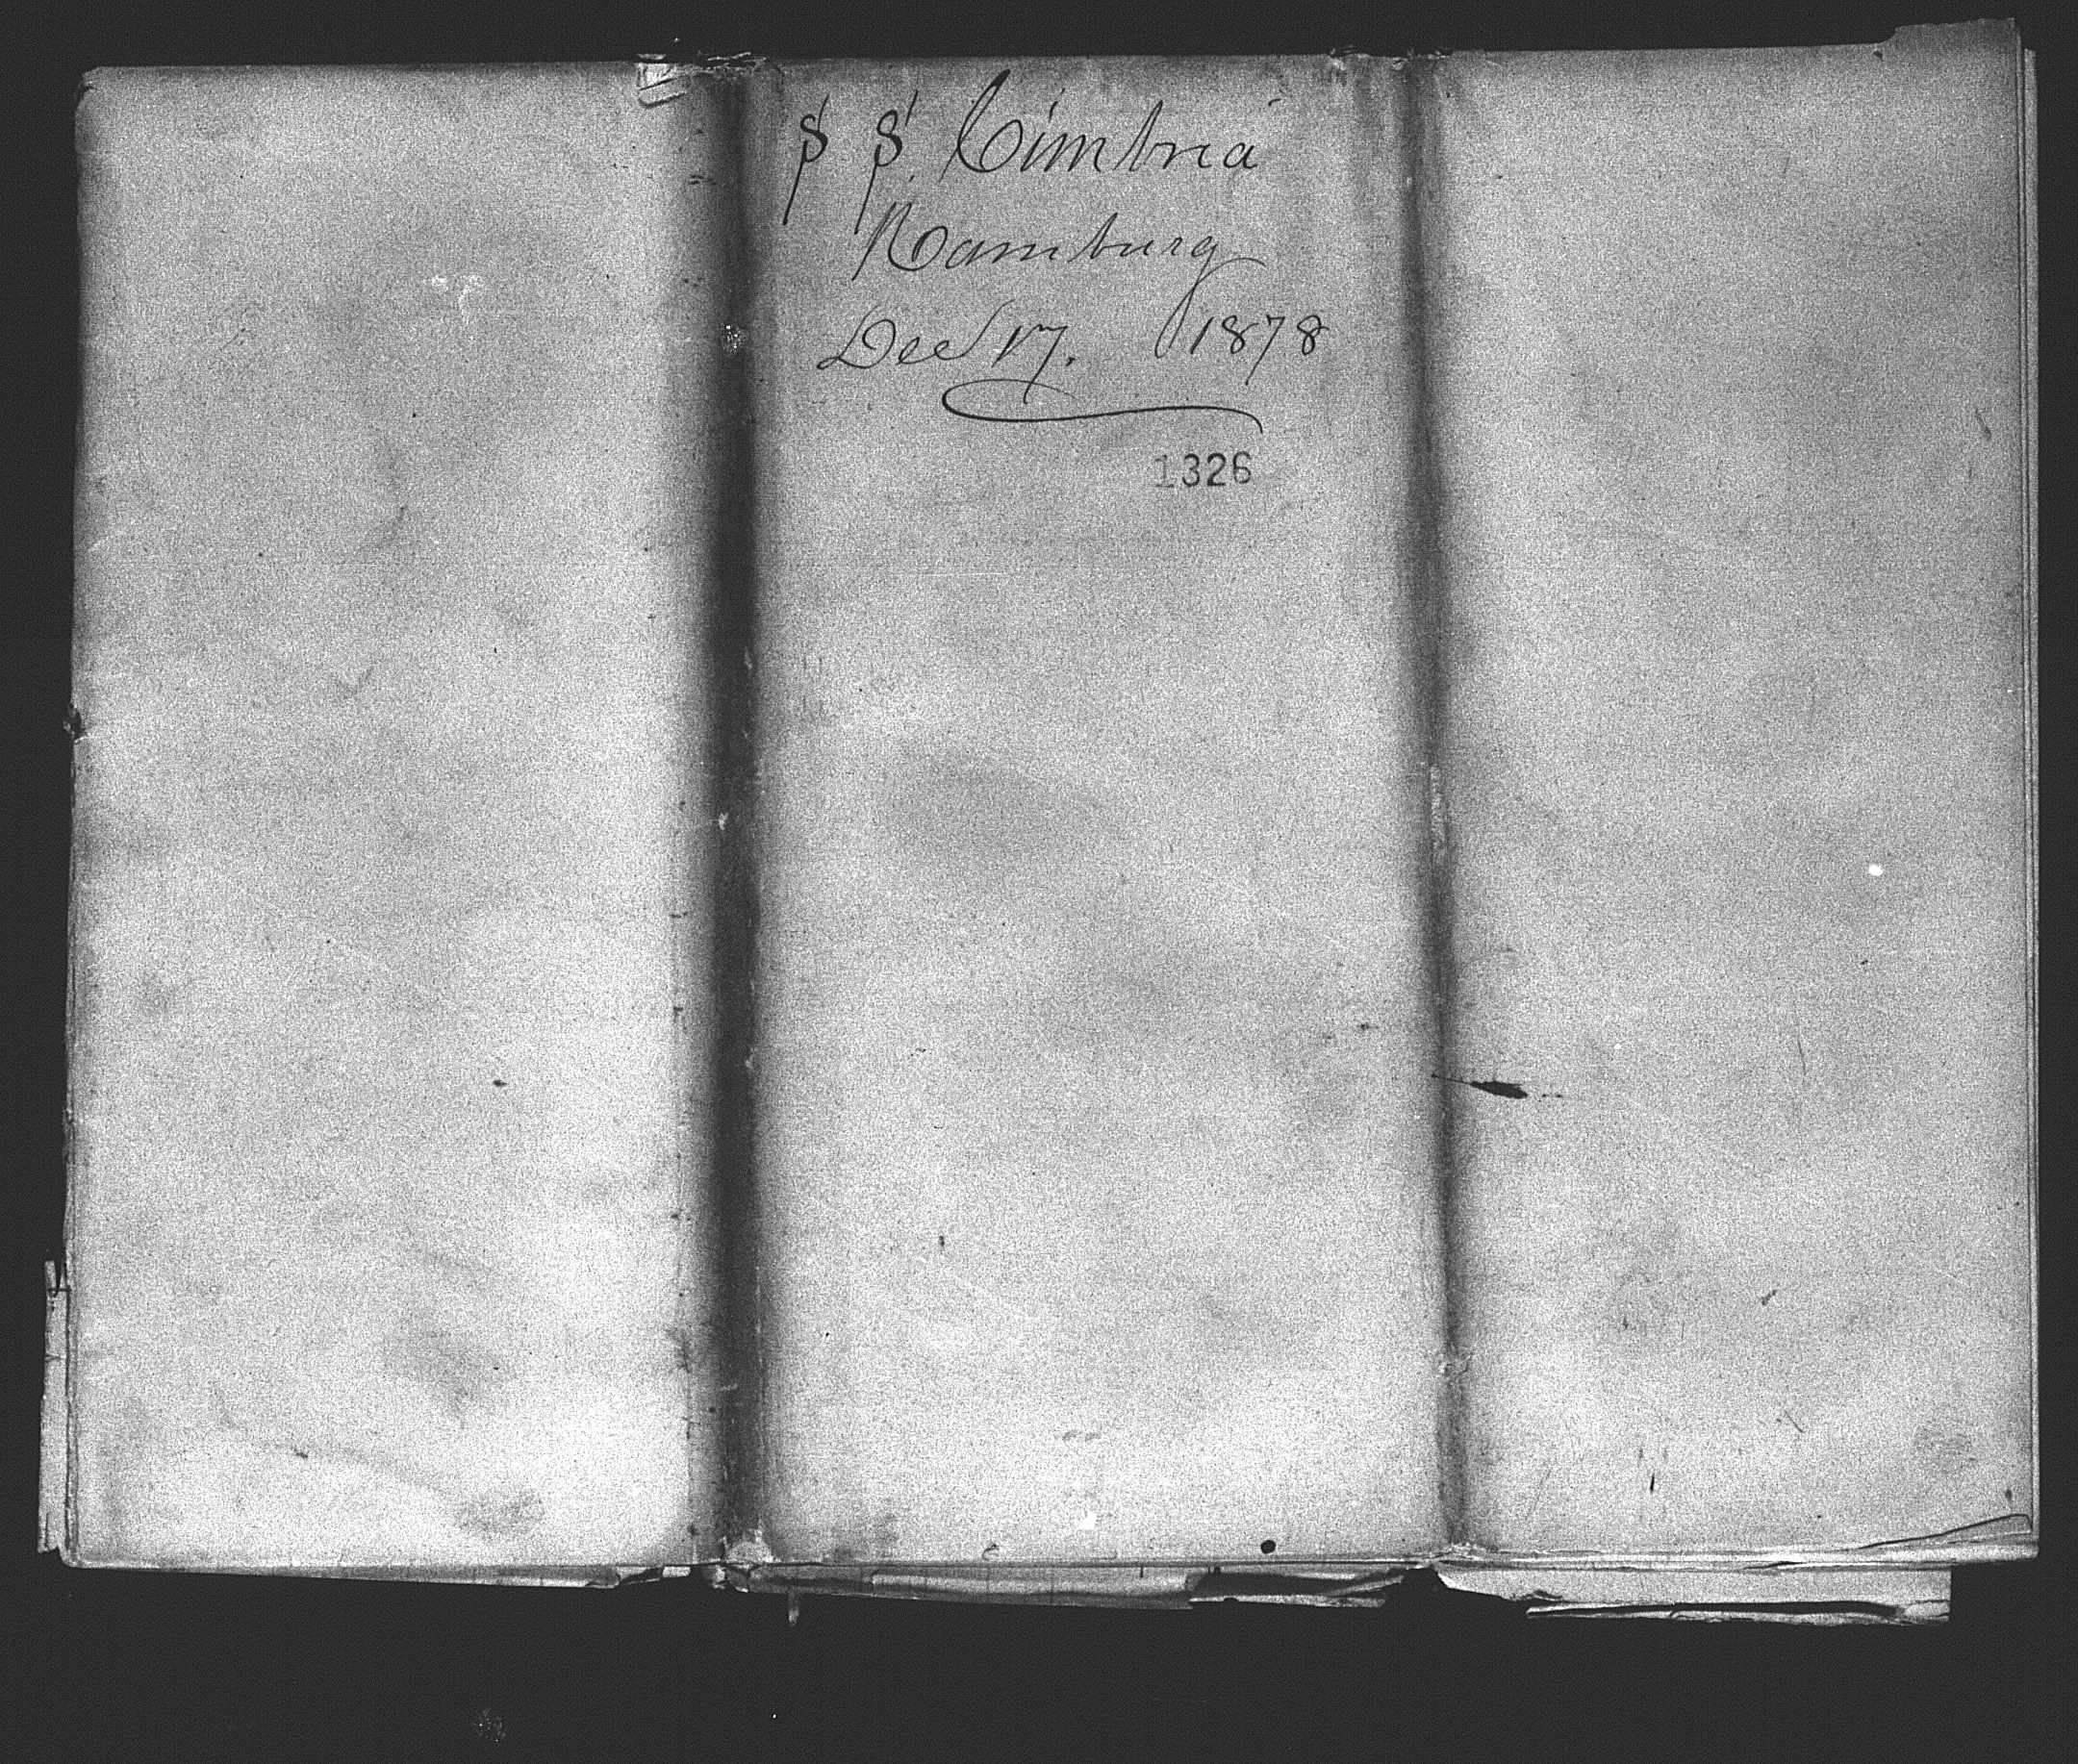 S S. Cimbria
Hamburg
Dec 17. 1878
1326